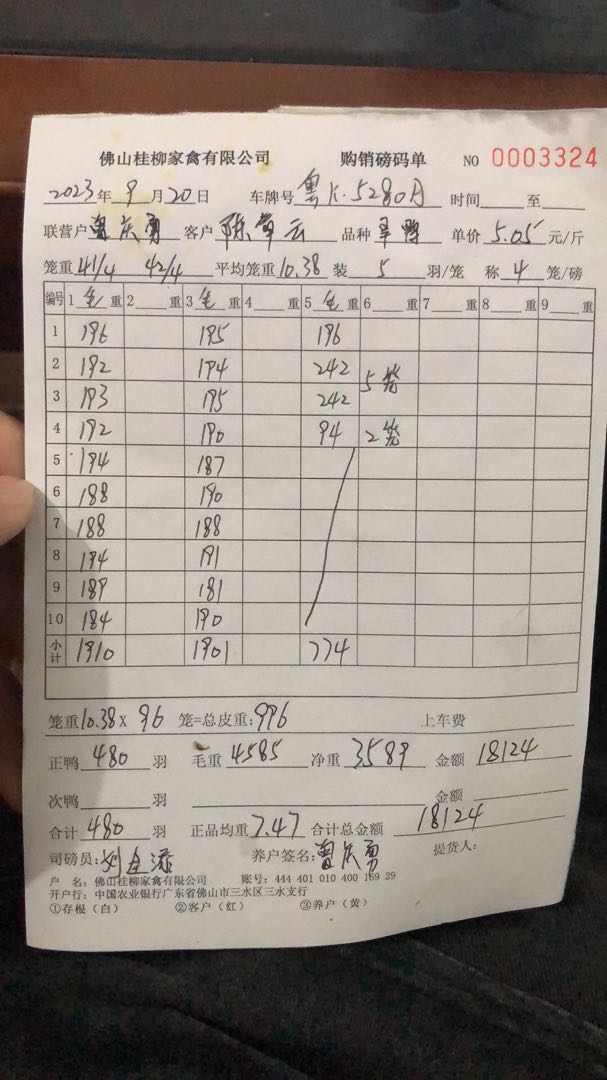 佛山桂柳家禽有限公司 购销磅码单 NO 0003324
2023年9月20日 车牌号 粤K·5280A 时间 至
联营户 曾庆勇 客户 陈 云 品种 单价 5.05 元/斤
笼重 41/4 42/4 平均笼重 10.38 装 5 羽/笼 称 4 笼/磅
编号 1 毛 重 2 重 3 毛 重 4 重 5 毛 重 6 重 7 重 8 重 9 重
1 196 195 196
2 192 194 242 5笼
3 193 195 242
4 192 190 94 2笼
5 194 187
6 188 190
7 188 188
8 194 191
9 189 181
10 184 190
小计 1910 1901 774
笼重 10.38 × 96 笼=总皮重: 996 上车费
正鸭 480 羽 毛重 4585 净重 3589 金额 18124
次鸭 羽 金额
合计 480 羽 正品均重 7.47 合计总金额 18124
司磅员: 养户签名: 曾庆勇 提货人:
户 名: 佛山桂柳家禽有限公司 账号: 444 401 010 400 169 29
开户行: 中国农业银行广东省佛山市三水区三水支行
①存根（白） ②客户（红） ③养户（黄）